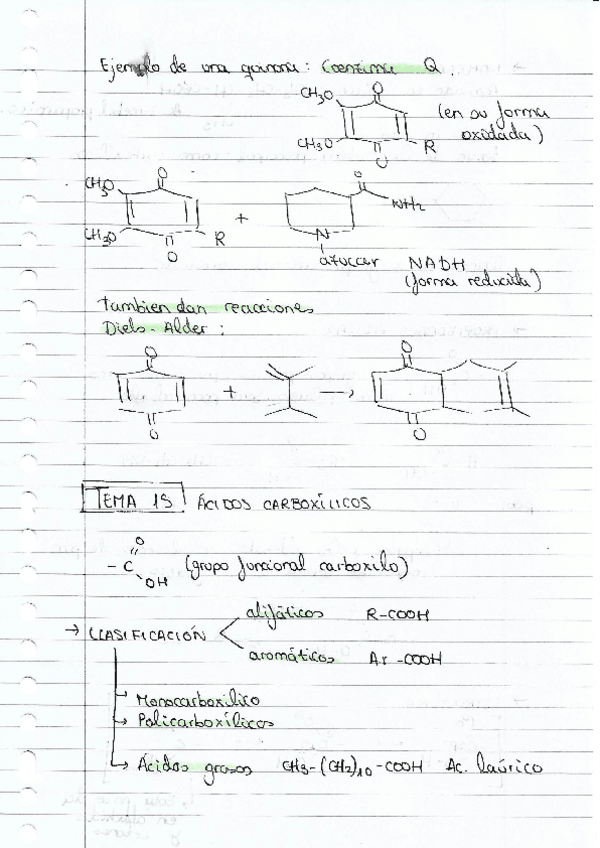 Ejemplo de una quinona: Coenzima Q
CH3O
O
(en su forma
oxidada)
CH3O
O
R
CH3O
O
CH3O
O
R
+
O
NH2
N
azucar
NADH
(forma reducida)
tambien dan reacciones
Diels-Alder:
O
O
+
→
O
O
TEMA 15 ÁCIDOS CARBOXÍLICOS
O
- C
OH
(grupo funcional carboxilo)
→ CLASIFICACIÓN
alifáticos R-COOH
aromáticos Ar-COOH
→ Monocarboxílico
→ Policarboxílicos
→ Ácidos grasos CH3-(CH2)10-COOH Ac. laúrico